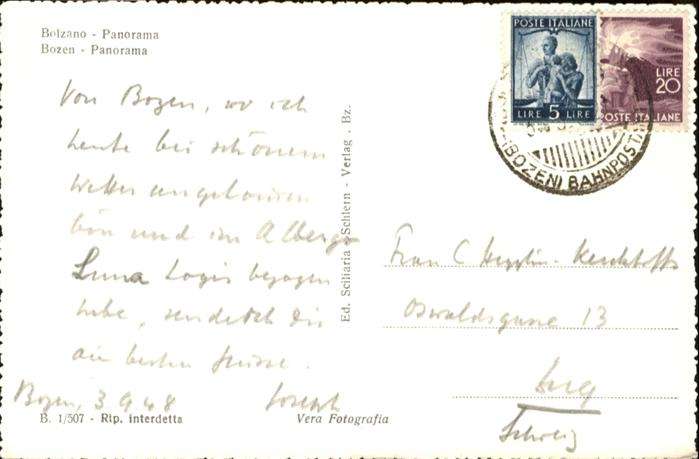 Bolzano - Panorama
Bozen - Panorama
Von Bozen, wo ich
heute bei schönem
Wetter angekommen
bin und im Albergo
Luna Logis bezogen
habe, sende ich dir
die besten Grüsse.
Bozen, 3 9 48 Joseph
B. 1/507 - Rip. interdetta
Vera Fotografia
Ed. Sciliaria - Schlern - Verlag . Bz.
POSTE ITALIANE
LIRE 5 LIRE
LIRE
20
POSTE ITALIANE
(BOZEN) BAHNPOST
Frau C
Oswaldsgasse 13
Zug
Schweiz